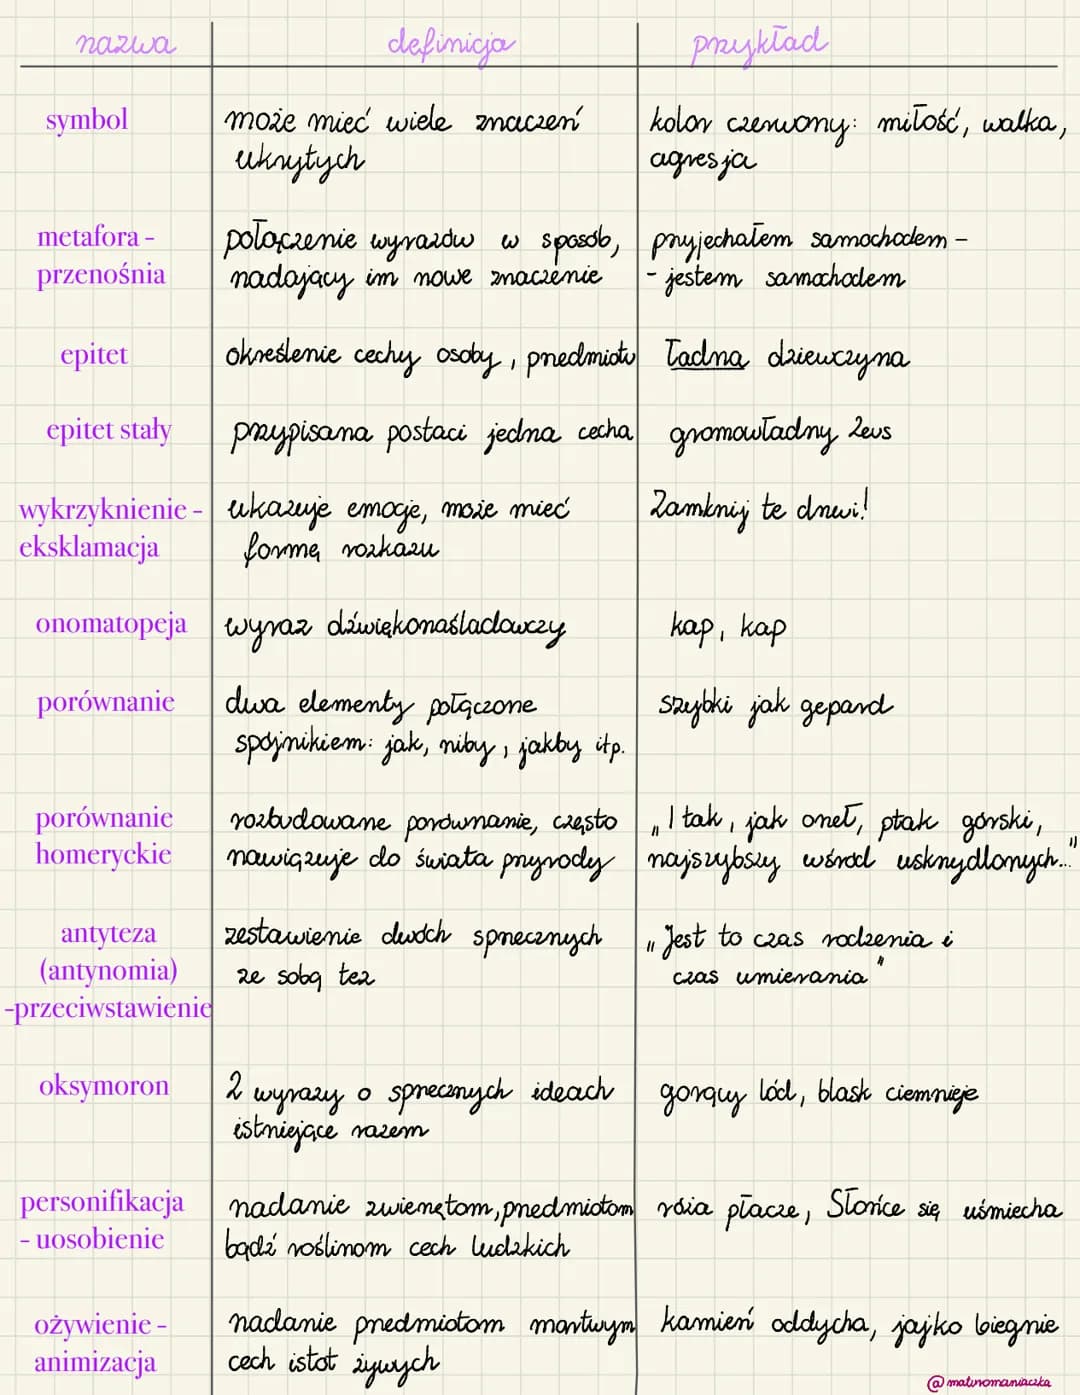 nazwa definicja przykład
symbol może mieć wiele znaczeń kolor czerwony: miłość, walka,
ukrytych agresja
metafora - połączenie wyrazów w sposób, przyjechałem samochodem -
przenośnia nadający im nowe znaczenie - jestem samochodem
epitet określenie cechy osoby, przedmiotu ładna dziewczyna
epitet stały przypisana postaci jedna cecha gromowładny Zeus
wykrzyknienie - ukazuje emocje, może mieć Zamknij te drzwi!
eksklamacja formę rozkazu
onomatopeja wyraz dźwiękonaśladowczy kap, kap
porównanie dwa elementy połączone szybki jak gepard
spójnikiem: jak, niby, jakby itp.
porównanie rozbudowane porównanie, często „I tak, jak orzeł, ptak górski,
homeryckie nawiązuje do świata przyrody najszybszy wśród uskrzydlonych..."
antyteza zestawienie dwóch sprzecznych „Jest to czas rodzenia i
(antynomia) ze sobą tez czas umierania"
-przeciwstawienie
oksymoron 2 wyrazy o sprzecznych ideach gorący lód, blask ciemnieje
istniejące razem
personifikacja nadanie zwierzętom, przedmiotom róża płacze, Słońce się uśmiecha
- uosobienie bądź roślinom cech ludzkich
ożywienie - nadanie przedmiotom martwym kamień oddycha, jajko biegnie
animizacja cech istot żywych
@malinomaniaczka